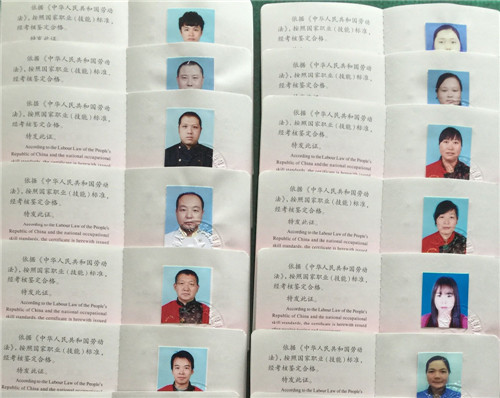 依据《中华人民共和国劳动
法》，按照国家职业（技能）标准，
经考核鉴定合格。
特发此证。
依据《中华人民共和国劳动
法》，按照国家职业（技能）标准，
经考核鉴定合格。
依据《中华人民共和国劳动
法》，按照国家职业（技能）标准，
经考核鉴定合格。
特发此证。
According to the Labour Law of the People's
Republic of China and the national occupational
依据《中华人民共和国劳动
法》，按照国家职业（技能）标准，
经考核鉴定合格。
特发此证。
According to the Labour Law of the People's
Republic of China and the national occupational
skill standards, the certificate is herewith issued
依据《中华人民共和国劳动
法》，按照国家职业（技能）标准，
经考核鉴定合格。
特发此证。
According to the Labour Law of the People's
Republic of China and the national occupational
skill standards, the certificate is herewith issued
依据《中华人民共和国劳动
法》，按照国家职业（技能）标准，
经考核鉴定合格。
特发此证。
According to the Labour Law of the People's
Republic of China and the national occupational
依据《中华人民共和国劳动
法》，按照国家职业（技能）标准，
经考核鉴定合格。
特发此证。
依据《中华人民共和国劳动
法》，按照国家职业（技能）标准，
经考核鉴定合格。
依据《中华人民共和国劳动
法》，按照国家职业（技能）标准，
经考核鉴定合格。
特发此证。
According to the Labour Law of the People's
Republic of China and the national occupational
依据《中华人民共和国劳动
法》，按照国家职业（技能）标准，
经考核鉴定合格。
特发此证。
According to the Labour Law of the People's
Republic of China and the national occupational
skill standards, the certificate is herewith issued
依据《中华人民共和国劳动
法》，按照国家职业（技能）标准，
经考核鉴定合格。
特发此证。
According to the Labour Law of the People's
Republic of China and the national occupational
skill standards, the certificate is herewith issued
依据《中华人民共和国劳动
法》，按照国家职业（技能）标准，
经考核鉴定合格。
特发此证。
According to the Labour Law of the People's